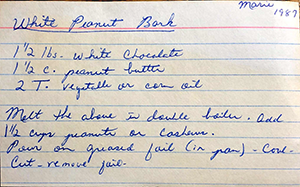 Marie
1987
White Peanut Bark
1 1/2 lbs. white chocolate
1 1/2 c. peanut butter
2 T. vegetable or corn oil
Melt the above in double boiler. Add
1 1/2 cups peanuts or cashews.
Pour on greased foil (in pan) - Cool -
Cut - remove foil.